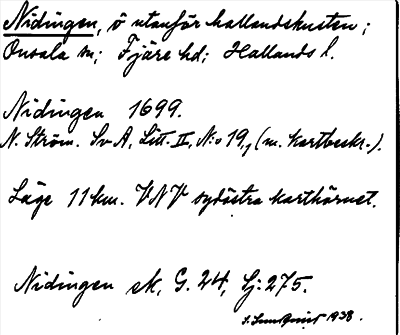 Nidingen, ö utanför hallandskusten;
Onsala sn; Fjäre hd; Hallands l.
Nidingen 1699.
N. Ström. Sv A, Litt. II, N:o 19, (m. kartbeskr.).
Läge 11 km. VNV sydöstra karthörnet.
Nidingen ek, G. 24, Lj: 275.
1938.